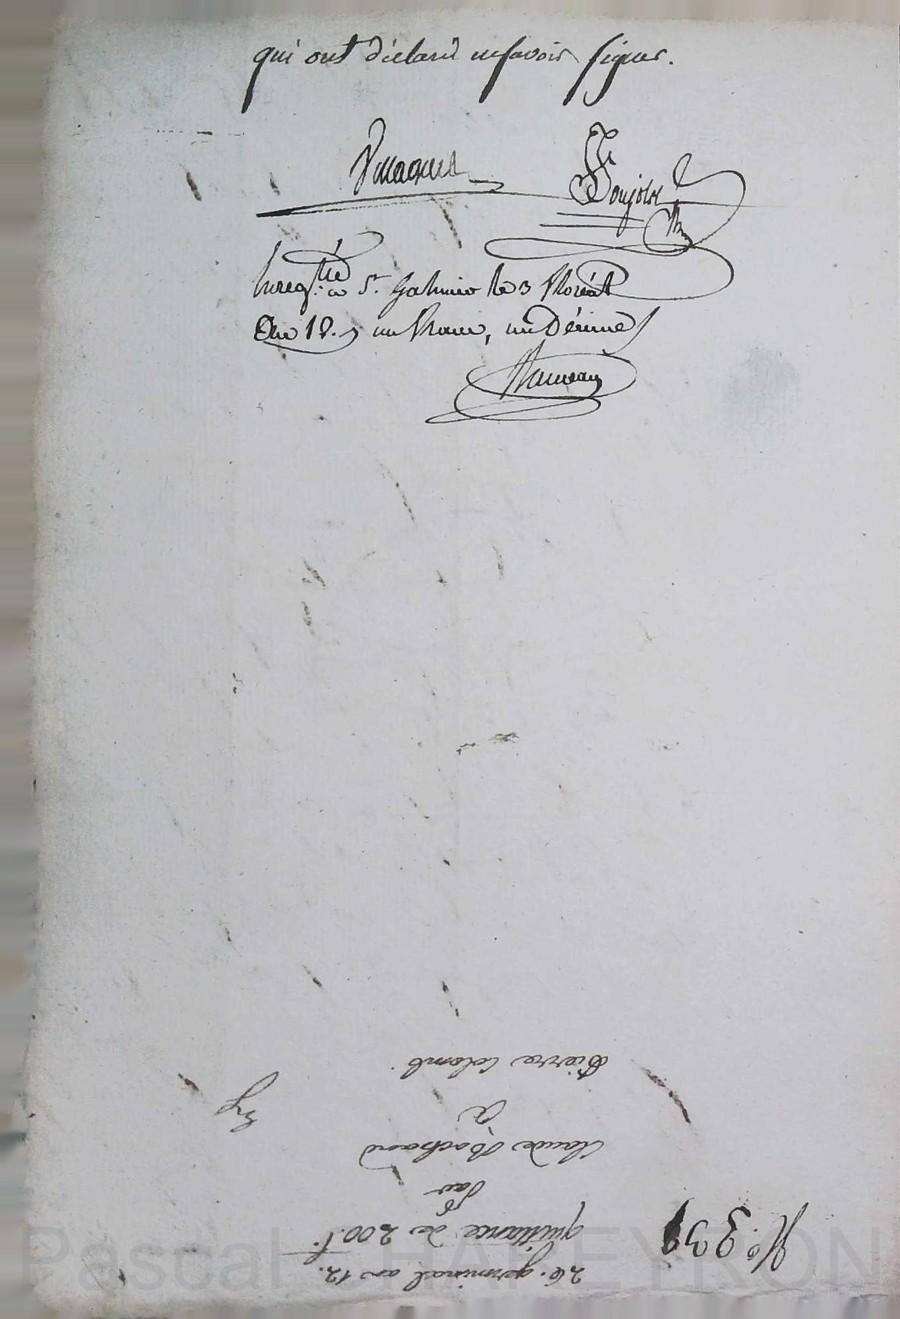 qui ont déclaré ne savoir signer.
Enreg.tré à St. Galmier le 3 floréal
an 12. un franc, un décime
26. germinal an 12.
quittance de 200 f.
Par
Claude
à
Pierre Colomb
N.o 339
Pascal CHALEYRON